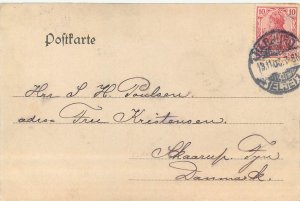 Postkarte
10 10
Hrr S. H. Poulsen
adress Frü Kristensen
Skaarup. Fyn
Danmark.